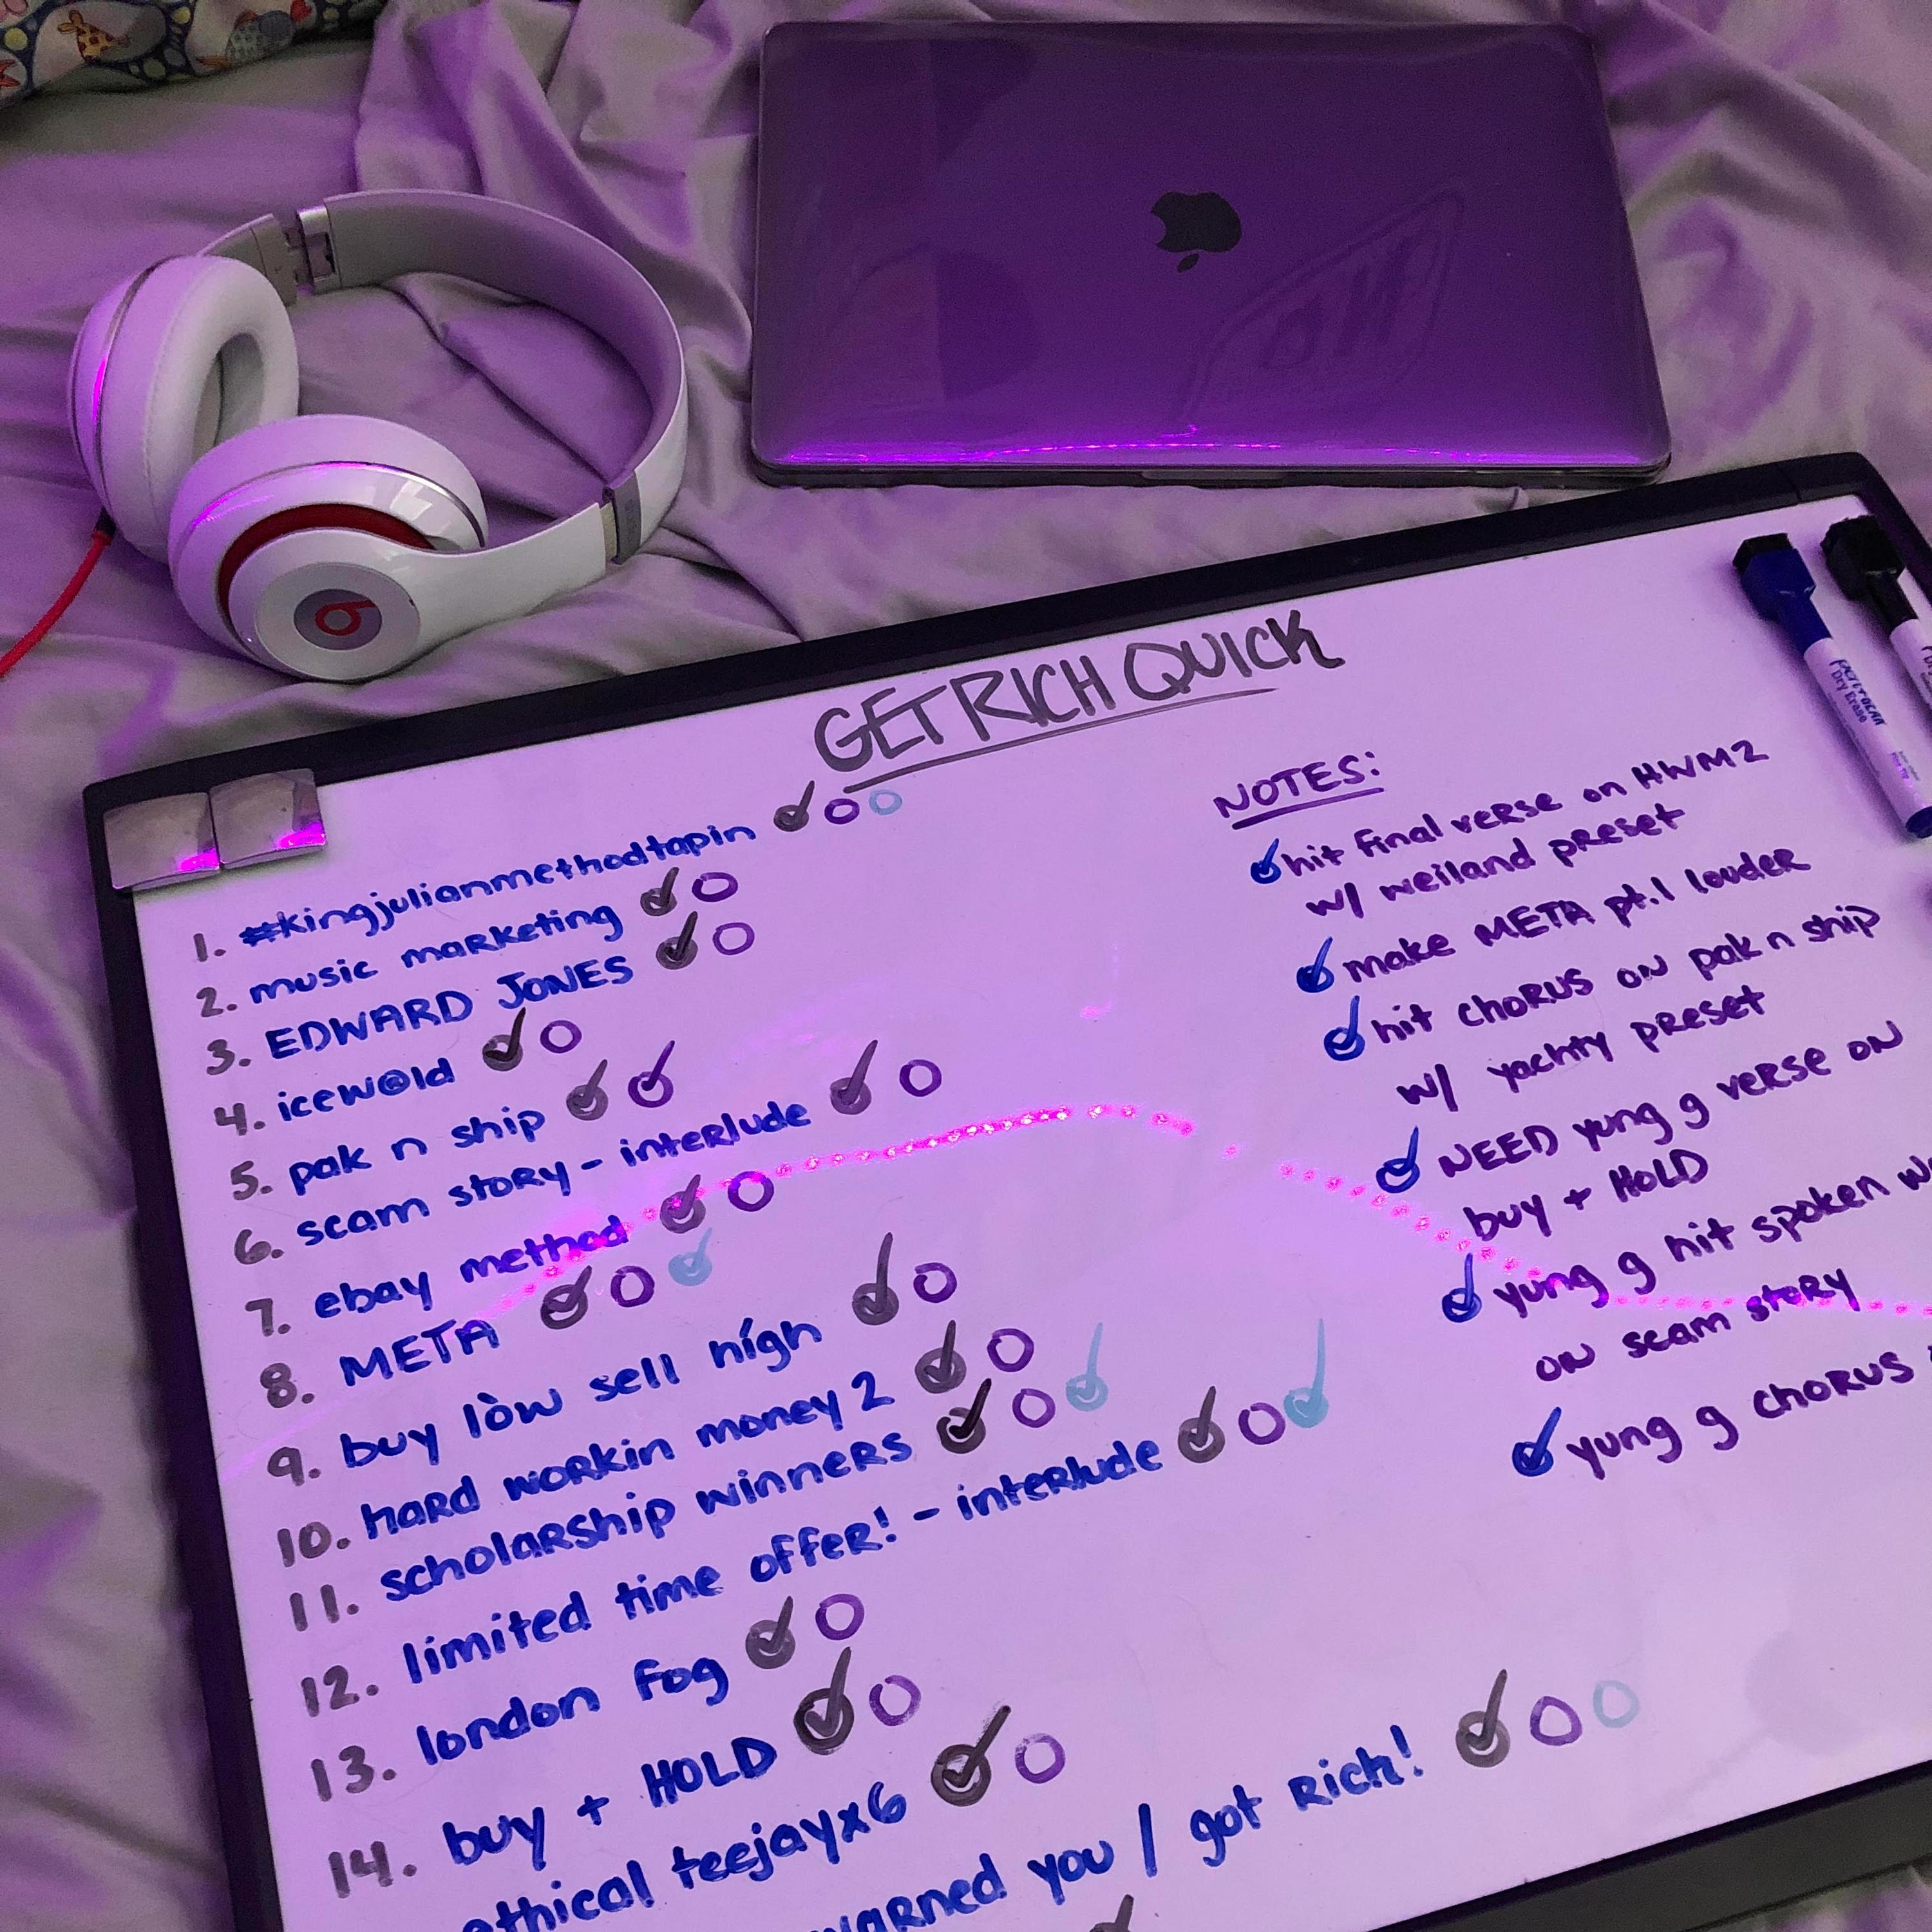 GET RICH QUICK
1. #kingjulianmethodtapin
2. music marketing
3. EDWARD JONES
4. icew@ld
5. pak n ship
6. scam story - interlude
7. ebay method
8. META
9. buy lòw sell hígh
10. hard workin money 2
11. scholarship winners
12. limited time offer! - interlude
13. london fog
14. buy + HOLD
ethical teejayx6
warned you / got rich!
NOTES:
hit final verse on HWM2
w/ weiland preset
make META pt.1 louder
hit chorus on pak n ship
w/ yachty preset
NEED yung g verse on
buy + HOLD
yung g hit spoken
on scam story
yung g chorus
Dry Erase
b